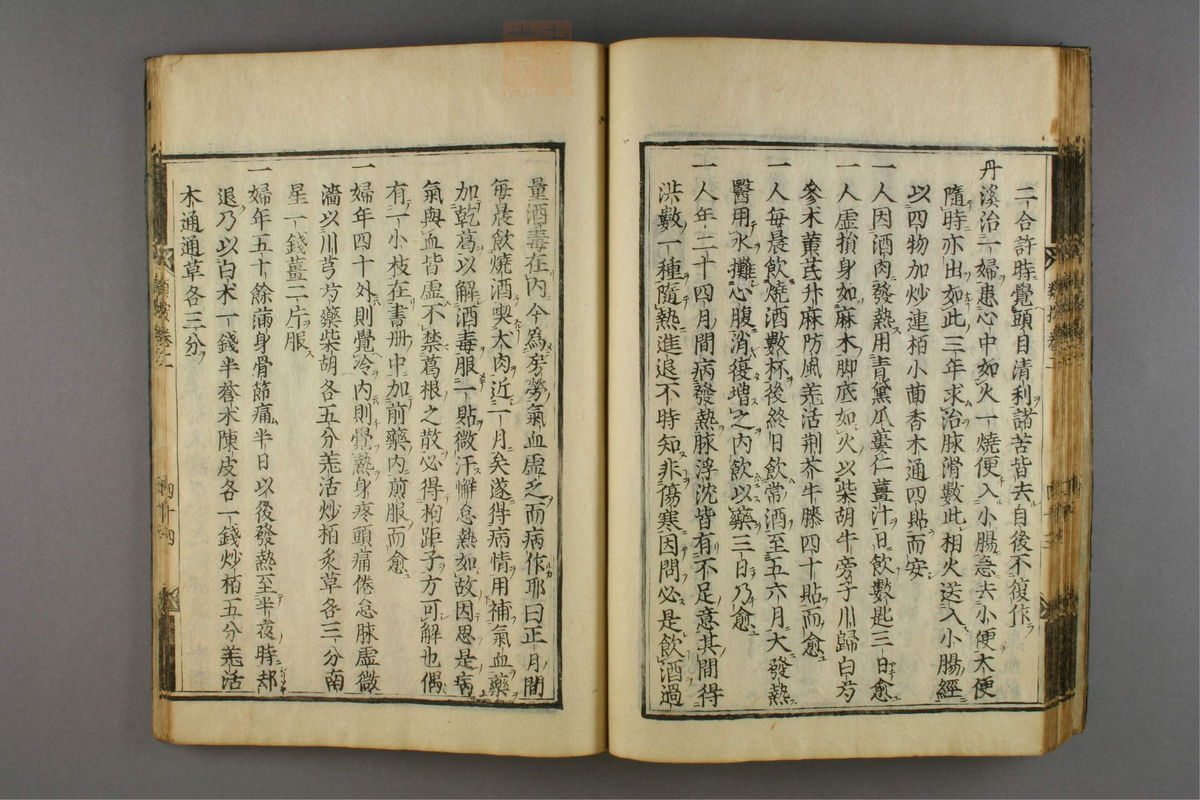 二合許時覺頭目清利諸苦皆去自後不復作
丹溪治一婦患心中如火一燒便入小腸急去小便大便
隨時亦出如此三年求治脉滑數此相火送入小腸經
以四物加炒連栢小茴香木通四貼而安
一人因酒肉發熱用青黛瓜蔞仁薑汁日飲數匙三日愈
一人虛損身如麻木脚底如火以柴胡牛旁子川歸白芍
參朮黄芪升麻防風羗活荆芥牛膝四十貼而愈
一人每晨飲燒酒數杯後終日飲常酒至五六月大發熱
醫用氷攤心腹消復增之內飲以藥三日乃愈
一人年二十四月間病發熱脉浮沈皆有不足意其間得
洪數一種隨熱進退不時知非傷寒因問必是飲酒過
量酒毒在內今爲房勞氣血虛乏而病作耶曰正月間
每晨飲燒酒喫犬肉近一月矣遂得病情用補氣血藥
加乾葛以解酒毒服一貼微汗懈怠熱如故因思是病
氣與血皆虛不禁葛根之散必得枸距子方可解也偶
有一小枝在書册中加前藥內煎服而愈
一婦年四十外則覺冷內則覺熱身疼頭痛倦怠脉虛微
濇以川芎芍藥柴胡各五分羗活炒栢炙草各三分南
星一錢薑二片服
一婦年五十餘滿身骨節痛半日以後發熱至半夜時却
退乃以白朮一錢半蒼朮陳皮各一錢炒栢五分羗活
木通通草各三分